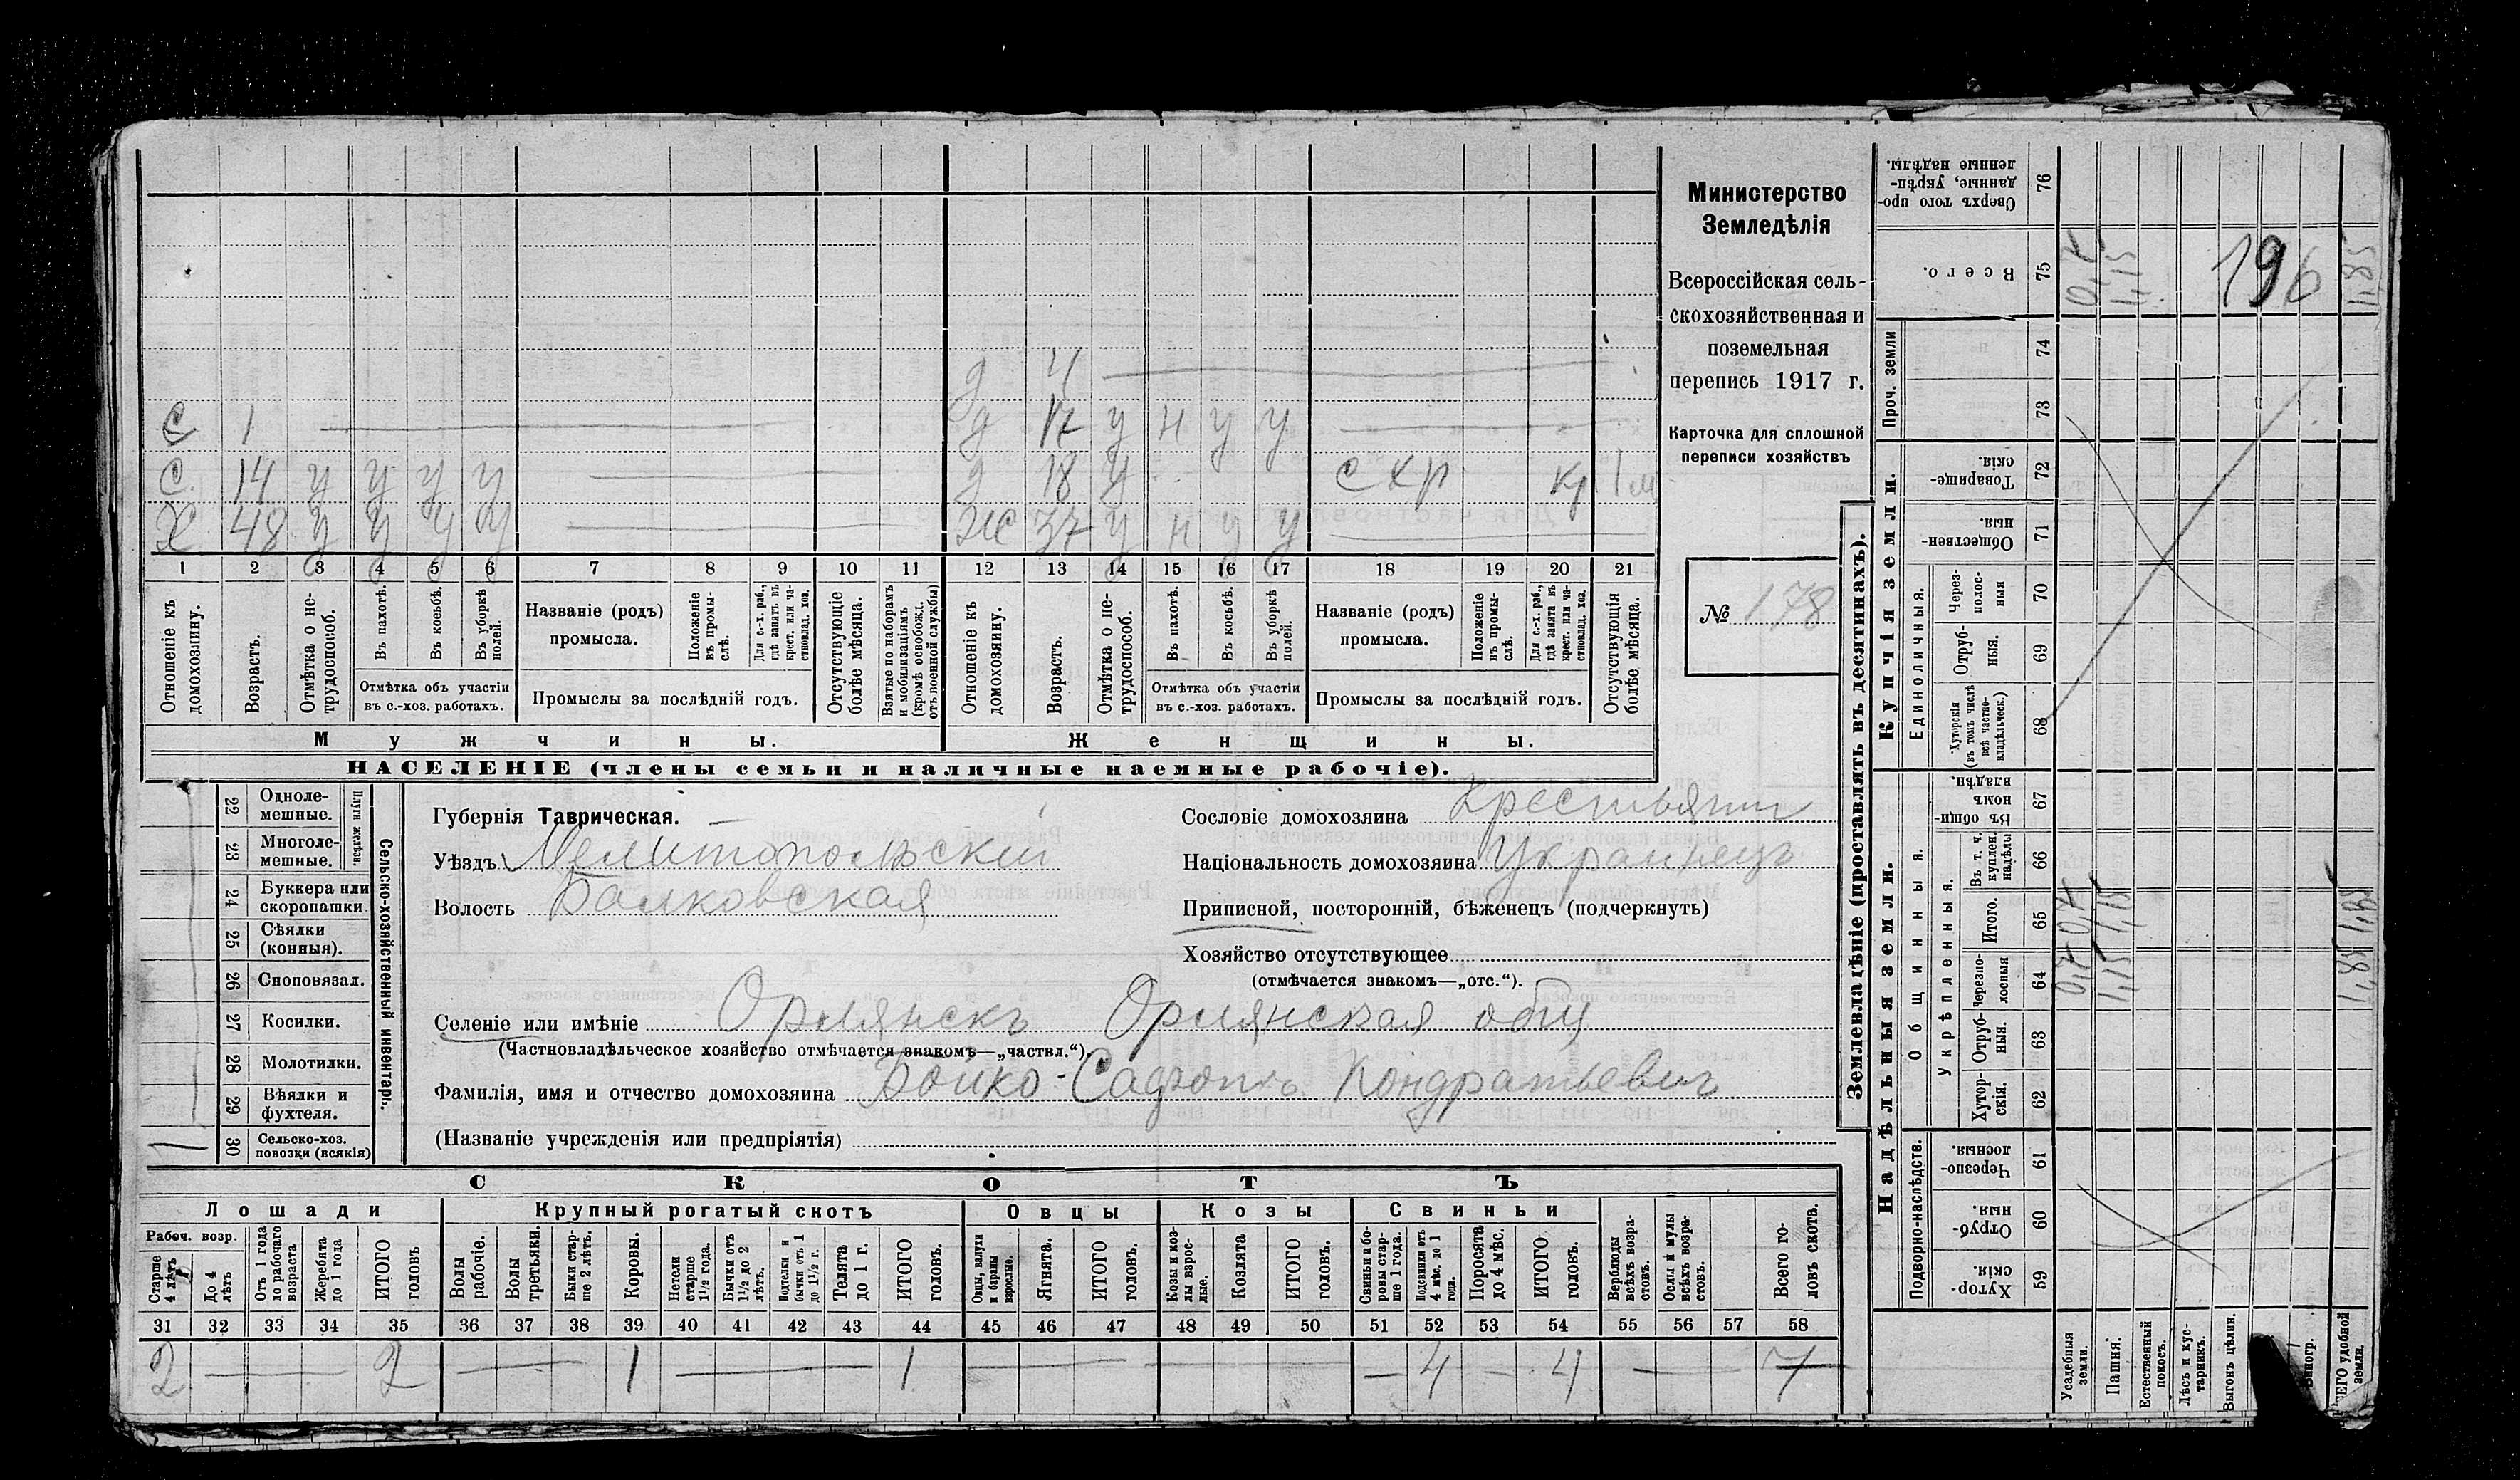 Министерство
Земледѣлія
Всероссійская сель-
скохозяйственная и
поземельная
перепись 1917 г.
Карточка для сплошной
переписи хозяйствъ
№ 178
д 4
с 1
д 17 у н у у
с 14 у у у у
д 18 у схр кр 1 м
Х 48 у у у у
Ж 37 у н у у
1 2 3 4 5 6 7 8 9 10 11 12 13 14 15 16 17 18 19 20 21
Отношеніе къ домохозяину.
Возрастъ.
Отмѣтка о не-трудоспособ.
Въ пахотѣ.
Въ косьбѣ.
Въ уборкѣ полей.
Отмѣтка объ участіи
въ с.-хоз. работахъ.
Названіе (родъ)
промысла.
Положеніе въ промы-слѣ.
Для с.-х. раб., гдѣ занятъ въ крест. или ча-стновлад. хоз.
Промыслы за послѣдній годъ.
Отсутствующіе болѣе мѣсяца.
Взятые по наборамъ и мобилизаціямъ (кромѣ освобожд. отъ военной службы)
Отношеніе къ домохозяину.
Возрастъ.
Отмѣтка о не-трудоспособ.
Въ пахотѣ.
Въ косьбѣ.
Въ уборкѣ полей.
Отмѣтка объ участіи
въ с.-хоз. работахъ.
Названіе (родъ)
промысла.
Положеніе въ промы-слѣ.
Для с.-х. раб., гдѣ занята въ крест. или ча-стновлад. хоз.
Промыслы за послѣдній годъ.
Отсутствующія болѣе мѣсяца.
Мужчины.
Женщины.
НАСЕЛЕНІЕ (члены семьи и наличные наемные рабочіе).
Сельско-хозяйственный инвентарь.
Плуги желѣзн.
22 Одноле-мешные.
23 Многоле-мешные.
24 Буккера или скоропашки.
25 Сѣялки (конныя).
26 Сноповязал.
27 Косилки.
28 Молотилки.
29 Вѣялки и фухтеля.
30 Сельско-хоз. повозки (всякія) 1
Губернія Таврическая.
Уѣздъ Мелитопольскій
Волость Балковская
Сословіе домохозяина Крестьянин
Національность домохозяина Украинецъ
Приписной, посторонній, бѣженецъ (подчеркнуть)
Хозяйство отсутствующее
(отмѣчается знакомъ—„отс.“).
Селеніе или имѣніе Орлянскъ Орлянская общ
(Частновладѣльческое хозяйство отмѣчается знакомъ—„частвл.“).
Фамилія, имя и отчество домохозяина Бойко Сафонъ Кондратьевич
(Названіе учрежденія или предпріятія)
СКОТЪ
Лошади
Крупный рогатый скотъ
Овцы
Козы
Свиньи
Рабоч. возр.
Старше 4 лѣтъ
До 4 лѣтъ
Отъ 1 года до рабочаго возраста
Жеребята до 1 года
ИТОГО головъ
Волы рабочіе.
Волы третьяки.
Быки стар-ше 2 лѣтъ.
Коровы.
Нетели старше 1½ года.
Бычки отъ 1½ до 2 лѣтъ.
Подтелки и бычки отъ 1 до 1½ г.
Телята до 1 г.
ИТОГО головъ.
Овцы, валухи и бараны взрослые.
Ягнята.
ИТОГО головъ.
Козы и коз-лы взрос-лые.
Козлята
ИТОГО головъ.
Свиньи и бо-ровы стар-ше 1 года.
Подсвинки отъ 4 мѣс. до 1 года.
Поросята до 4 мѣс.
ИТОГО головъ.
Верблюды всѣхъ возра-стовъ.
Ослы и мулы всѣхъ возра-стовъ.
Всего го-ловъ скота.
31 32 33 34 35 36 37 38 39 40 41 42 43 44 45 46 47 48 49 50 51 52 53 54 55 56 57 58
2 2 1 1 4 4 7
Землевладѣніе (проставлять въ десятинахъ).
Надѣльныя земли.
Купчія земли.
Проч. земли
Подворно-наслѣдств.
Общинныя.
Укрѣпленныя.
Единоличныя.
Хутор-скія. 59
Отруб-ныя. 60
Черезпо-лосныя. 61
Хутор-скія. 62
Отруб-ныя. 63
Черезпо-лосныя 64
Итого. 65
Въ т. ч. куплен. надѣлы 66
Въ общин-номъ владѣн. 67
Хуторскія (въ томъ числѣ всѣ частно-владѣльческ.) 68
Отруб-ныя. 69
Через-полос-ныя 70
Обществен-ныя. 71
Товарище-скія. 72
73
74
Всего. 75
Сверхъ того про-данные, укрѣп-ленные надѣлы. 76
Усадебныя земли. 0,7 0,7 0,7
Пашня. 1,15 1,15 1,15
Естественный покосъ.
Лѣсъ и кус-тарникъ.
Выгонъ цѣлин.
Виногр.
ЕГО удобной земли. 1,85 1,85 1,85
196